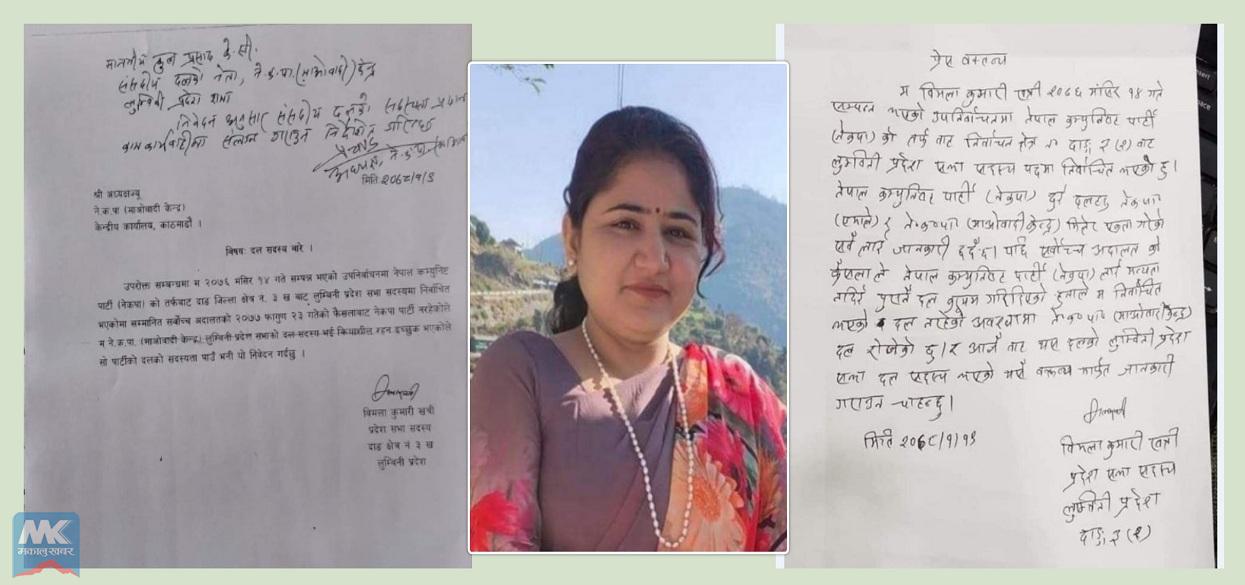 माननीय कुल प्रसाद के.सी.
संसदीय दलको नेता, ने.क.पा.(माओवादी) केन्द्र
लुम्बिनी प्रदेश सभा
निवेदन अनुसार संसदीय दलको सदस्यता
काम कारवाहीमा संलग्न गराउन निर्देशित
मिति २०७८/१/९
श्री अध्यक्षज्यू
ने.क.पा (माओवादी केन्द्र)
केन्द्रीय कार्यालय, काठमाडौं ।
विषयः दल सदस्य बारे ।
उपरोक्त सम्बन्धमा म २०७६ मंसिर १४ गते सम्पन्न भएको उपनिर्वाचनमा नेपाल कम्युनिष्ट
पार्टी (नेकपा) को तर्फबाट दाङ जिल्ला क्षेत्र नं. ३ ख बाट लुम्बिनी प्रदेश सभा सदस्यमा निर्वाचित
भएकोमा सम्मानित सर्वोच्च अदालतको २०७७ फागुण २३ गतेको फैसलाबाट नेकपा पार्टी नरहेकोले
म ने.क.पा. (माओवादी केन्द्र) लुम्बिनी प्रदेश सभाको दल सदस्य भई क्रियाशील रहन इच्छुक भएकोले
सो पार्टीको दलको सदस्यता पाउँ भनी यो निवेदन गर्दछु ।
बिमला कुमारी खत्री
प्रदेश सभा सदस्य
दाङ क्षेत्र नं ३ ख
लुम्बिनी प्रदेश
प्रेस वक्तव्य
म विमला कुमारी खत्री २०७६ मंसिर १४ गते
सम्पन्न भएको उपनिर्वाचनमा नेपाल कम्युनिस्ट पार्टी
(नेकपा) को तर्फ बाट निर्वाचन क्षेत्र नं दाङ ३ (२) बाट
लुम्बिनी प्रदेश सभा सदस्य पदमा निर्वाचित भएको हुँ।
नेपाल कम्युनिस्ट पार्टी (नेकपा) दुई दलहरु नेकपा
(एमाले) र ने.क.पा (माओवादी केन्द्र) मिलेर एकता गरेको
सबै लाई जानकारी हुँदैछ। यदि सर्वोच्च अदालत को
फैसलाले नेपाल कम्युनिस्ट पार्टी (नेकपा) लाई मान्यता
नदिई पुरानै दल कायम गरिदिएको हुनाले म निर्वाचित
भएको दल नरहेको अवस्थामा ने.क.पा (माओवादी केन्द्र)
दल रोजेको छु।र आजै बाट यस दलको लुम्बिनी प्रदेश
सभा दल सदस्य भएको यसै वक्तव्य मार्फत जानकारी
गराउन चाहन्छु।
मिति २०७८/१/१९
विमला कुमारी खत्री
प्रदेश सभा सदस्य
लुम्बिनी प्रदेश
दाङ ३ (२)
MK
मकालु खबर